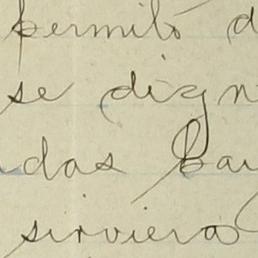 permito d
se dign
das bai
sirviera